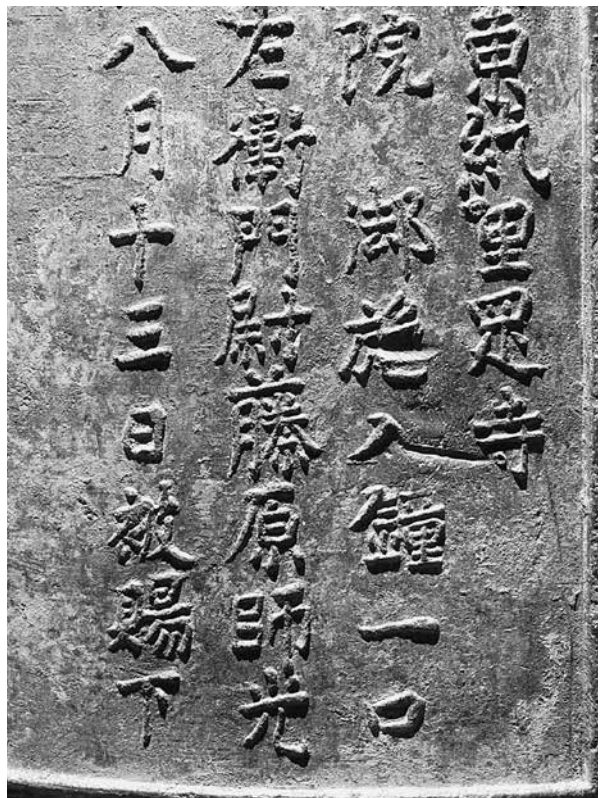 東紇里寺
院 御施入鐘一口
左衛門尉藤原師光
八月十三日被賜下